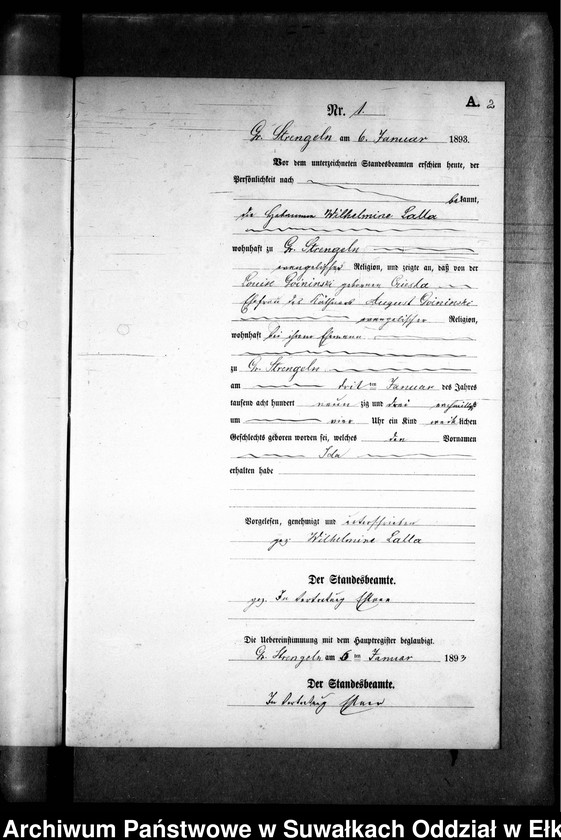 A. 2
Nr. 1.
Gr. Strengeln am 6. Januar 1893.
Vor dem unterzeichneten Standesbeamten erschien heute, der
Persönlichkeit nach
bekannt,
die Hebamme Wilhelmine Lalla
wohnhaft zu Gr. Strengeln
evangelischer Religion, und zeigte an, daß von der
Louise geborenen
Ehefrau des Käthners August
evangelischer Religion,
wohnhaft bei ihrem Ehemann
zu Gr. Strengeln
am dritten Januar des Jahres
tausend acht hundert neun zig und drei
um vier Uhr ein Kind weiblichen
Geschlechts geboren worden sei, welches den Vornamen
Ida
erhalten habe
Vorgelesen, genehmigt und unterschrieben
gez. Wilhelmine Lalla
Der Standesbeamte.
gez. In Vertretung
Die Uebereinstimmung mit dem Hauptregister beglaubigt.
Gr. Strengeln am 6ten Januar 1893
Der Standesbeamte.
In Vertretung
Archiwum Państwowe w Suwałkach Oddział w Ełk